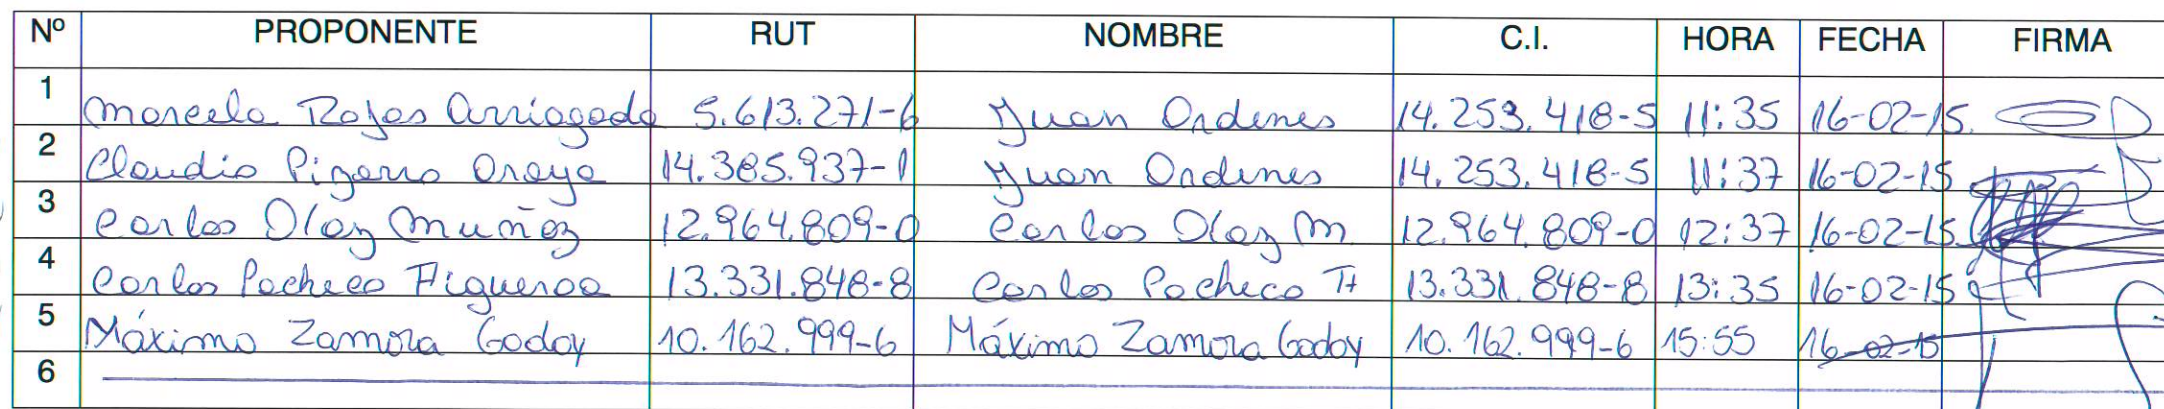 Nº PROPONENTE RUT NOMBRE C.I. HORA FECHA FIRMA
1 Marcela Rojas Arriagada 5.613.271-6 Juan Ordenes 14.253.418-5 11:35 16-02-15.
2 Claudio Pizarro Araya 14.385.937-1 Juan Ordenes 14.253.418-5 11:37 16-02-15
3 Carlos Díaz Muñoz 12.964.809-0 Carlos Díaz M 12.964.809-0 12:37 16-02-15.
4 Carlos Pacheco Figueroa 13.331.848-8 Carlos Pacheco F 13.331.848-8 13:35 16-02-15
5 Máximo Zamora Godoy 10.162.999-6 Máximo Zamora Godoy 10.162.999-6 15:55 16-02-15
6